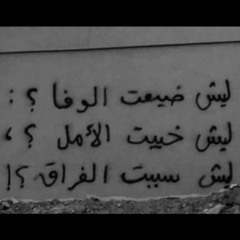 ليش ضيعت الوفا ؟ :
ليش خيبت الأمل ؟ ،
ليش سببت الفراق ؟!